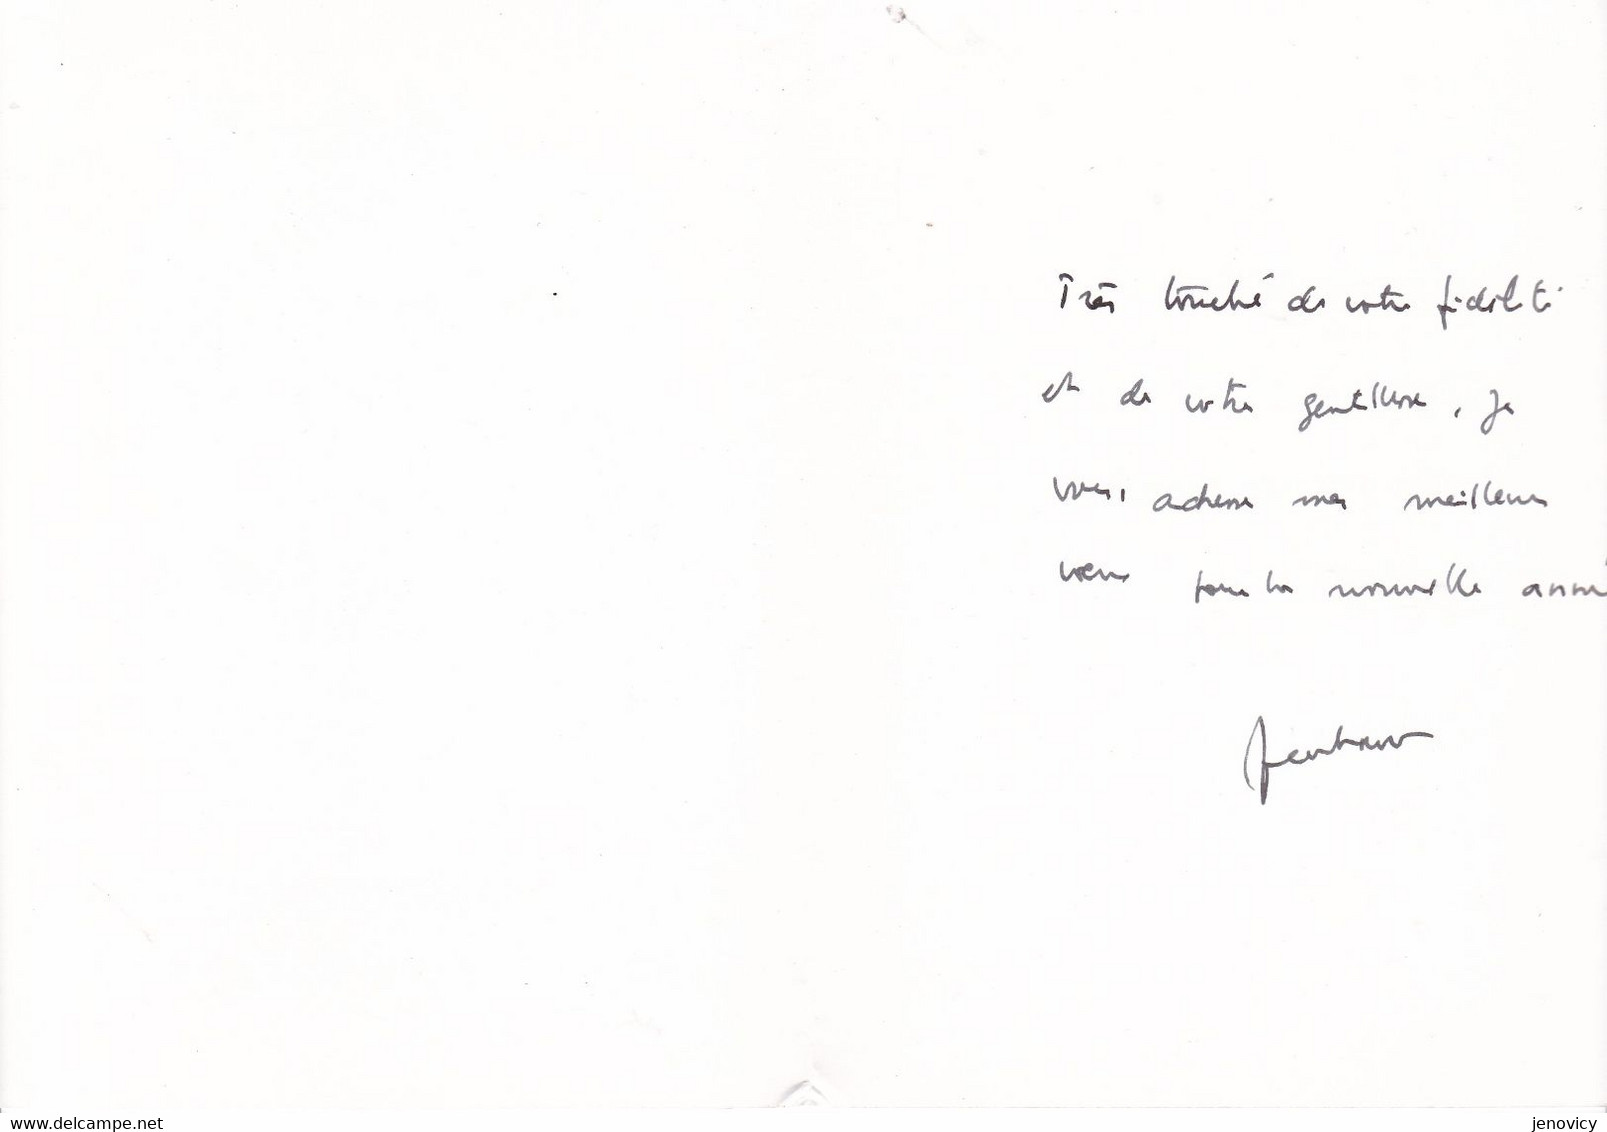 Très touché de votre fidélité
et de votre gentillesse, je
vous adresse mes meilleurs
vœux pour la nouvelle année
www.delcampe.net
jenovicy